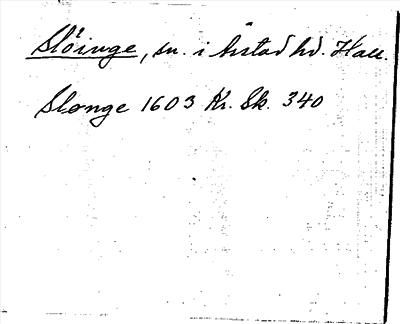 Slöinge, sn. i Årstad hd. Hall.
Slönge 1603 Kr. Sk. 340